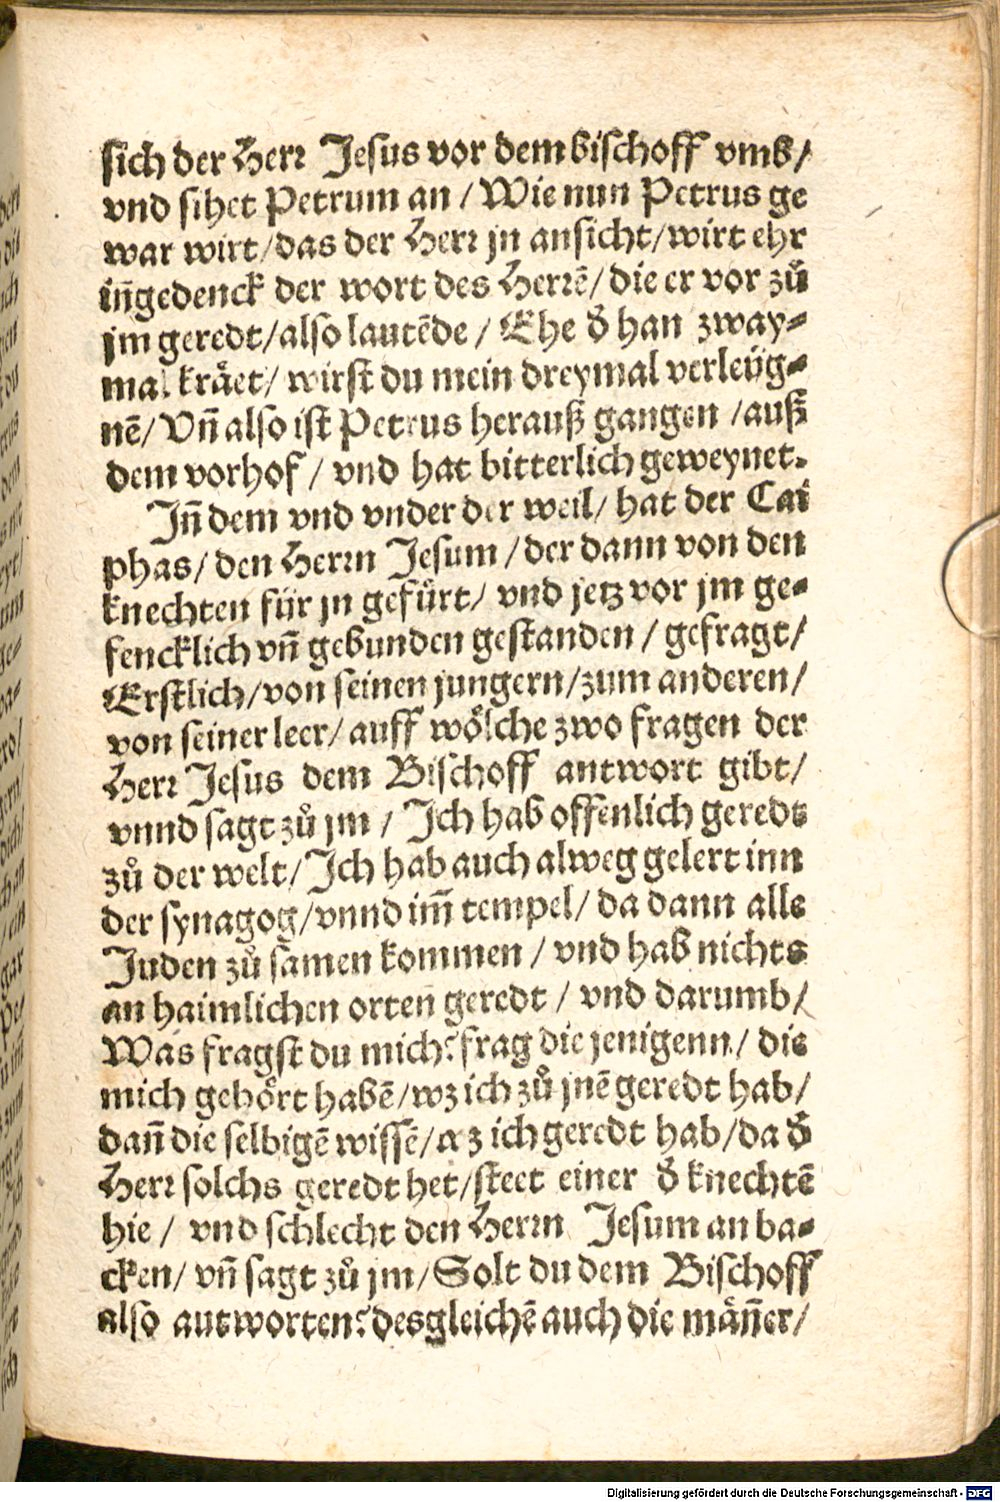 sich der Herr Jesus vor dem bischoff vmb/
vnd sihet Petrum an / Wie nun Petrus ge
war wirt/das der Herr jn ansicht/wirt ehr
iñgedenck der wort des Herrē/ die er vor zů
jm geredt/also lautēde / Ehe d̕ han zway⸗
mal kräet/ wirst du mein dreymal verleüg⸗
nē/ Vñ also ist Petrus herauß gangen /auß
dem vorhof / vnd hat bitterlich geweynet.
Jñ dem vnd vnder der weil/ hat der Cai
phas/ den Herrn Jesum /der dann von den
knechten für jn gefürt/ vnd jetz vor jm ge⸗
fencklich vñ gebunden gestanden / gefragt/
Erstlich/von seinen jungern/zum anderen/
von seiner leer/ auff wölche zwo fragen der
Herr Jesus dem Bischoff antwort gibt/
vnnd sagt zů jm / Ich hab offenlich geredt
zů der welt/ Ich hab auch alweg gelert inn
der synagog/vnnd im̃ tempel/ da dann alle
Juden zů samen kommen / vnd hab nichts
an haimlichen orten geredt / vnd darumb/
Was fragst du mich? frag die jenigenn / die
mich gehört habē/wz ich zů jnē geredt hab/
dañ die selbigē wissē/ wz ich geredt hab/da d̕
Herr solchs geredt het/steet einer d̕ knechtē
hie / vnd schlecht den Herrn Jesum an ba⸗
cken/ vñ sagt zů jm/ Solt du dem Bischoff
also antworten? desgleichē auch die mäñer/
Digitalisierung gefördert durch die Deutsche Forschungsgemeinschaft - DFG